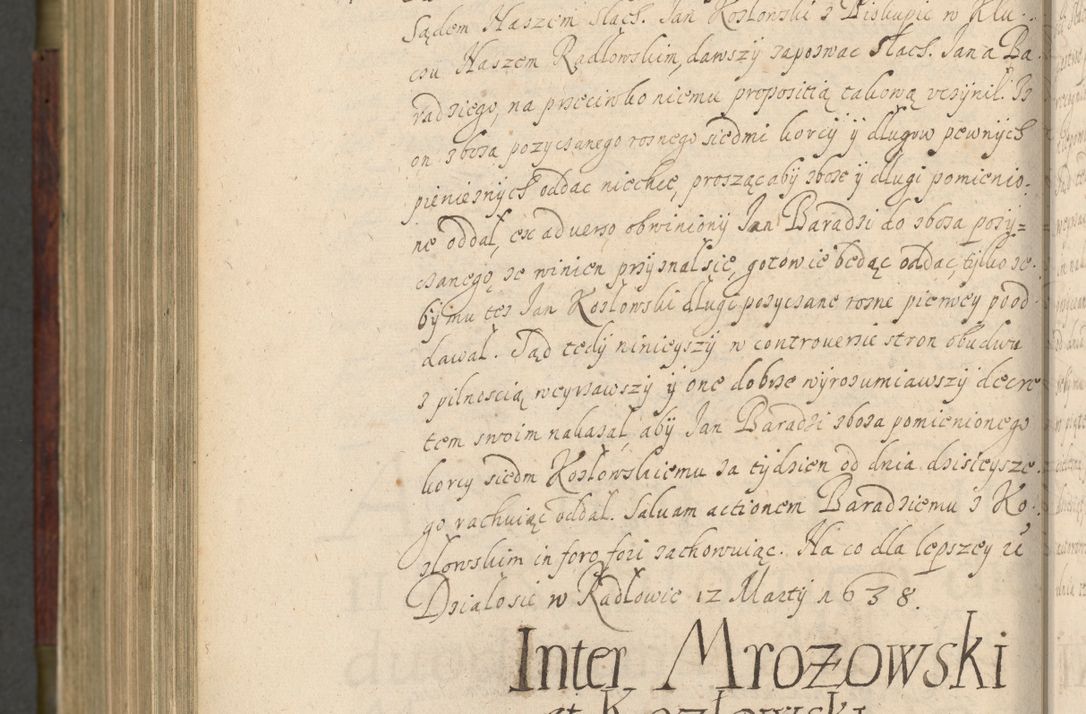 Sądem Naszem Slach. Jan Kozłowski z Biskupic w Klu-
czu Naszem Radłowskim, dawszy zapozwac Slach. Jana Ba
radziego, na przeciwko niemu propositią takową vczynil. Iz
on zboza pozyczanego roznego siedmi korcy y dlugow pewnych
pieniesnych oddac niechce, prosząc aby zboze y dlugi pomienio-
ne oddal, ex adverso obwiniony Jan Baradzi do zboza pozy=
czanego, ze winien przyznal się, gotow ie będąc oddac tylko ze
by mu tez Jan Kozlowski dlugi pozyczane rozne pierwey pood
dawal. Sąd tedy ninieyszy w controversie stron obudwu
z pilnoscią weyzrawszy y one dobrze wyrozumiawszy decre
tem swoim nakazal, aby Jan Baradzi zboza pomienionego
korcy siedm Kozlowskiemu za tydzien od dnia dzisieysze
go rachuiąc oddal. Salvam actionem Baradziemu z Ko-
zlowskim in foro fori zachowuiąc. Na co dla lepszey
Dzialo sie w Radłowie 12 Marty 1638.
Inter Mrozowski
et Kozłowski